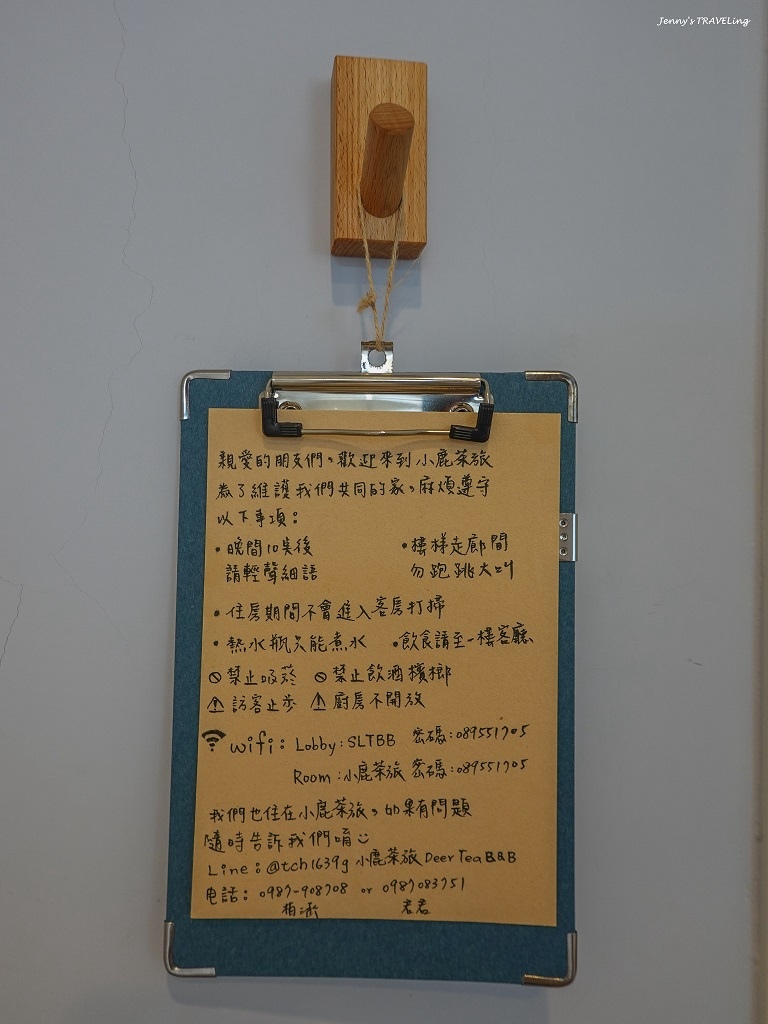 Jenny's TRAVELing
親愛的朋友們,歡迎來到小鹿茶旅
為了維護我們共同的家,麻煩遵守
以下事項:
•晚間10點後 •樓梯走廊間
請輕聲細語 勿跑跳大叫
•住房期間不會進入客房打掃
•熱水瓶只能煮水 •飲食請至一樓客廳
禁止吸菸 禁止飲酒檳榔
訪客止步 廚房不開放
wifi: Lobby:SLTBB 密碼:089551705
Room:小鹿茶旅 密碼:089551705
我們也住在小鹿茶旅,如果有問題
隨時告訴我們唷
Line:@tch1639g 小鹿茶旅 Deer Tea B&B
电話: 0987-908708 or 0987083751
柏涵 君君